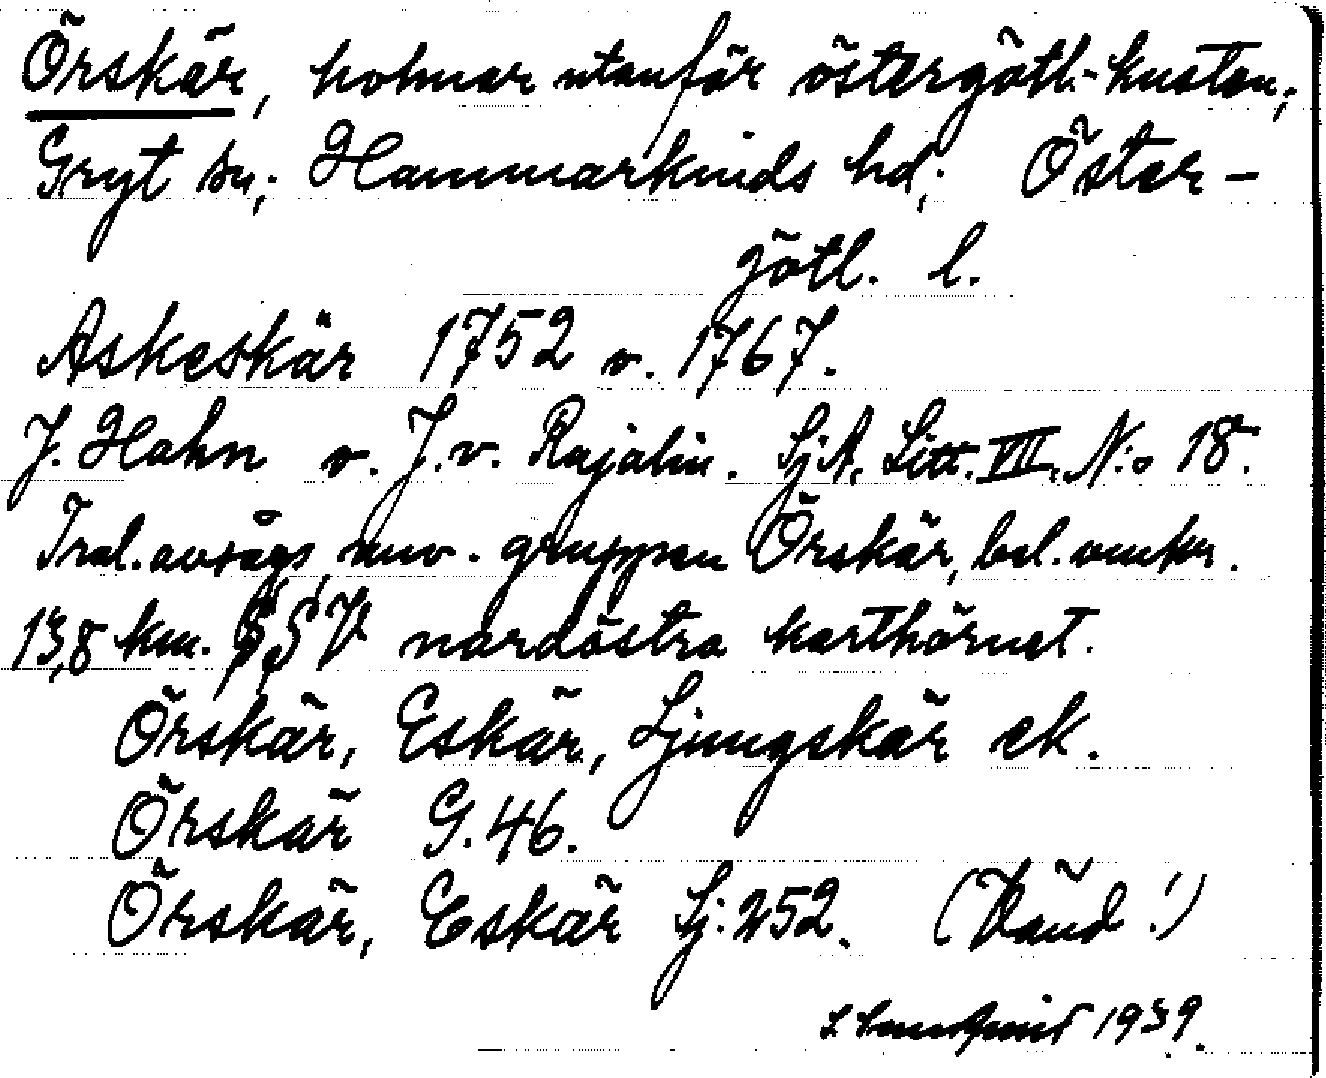 Örskär, holmar utanför östergötl.-kusten;
Gryt sn; Hammarkinds hd; Öster-
götl. l.
Askeskär 1752 o. 1767.
J. Hahn o. J. v. Rajalin. SjA. Litt. VII. N:o 18.
Trol. avsågs nuv. gruppen Örskär, bel. omkr.
13,8 km. SSV nordöstra karthörnet.
Örskär, Eskär, Ljungskär ek.
Örskär G. 46.
Örskär, Eskär Sj: 252. (Vänd!)
1939.